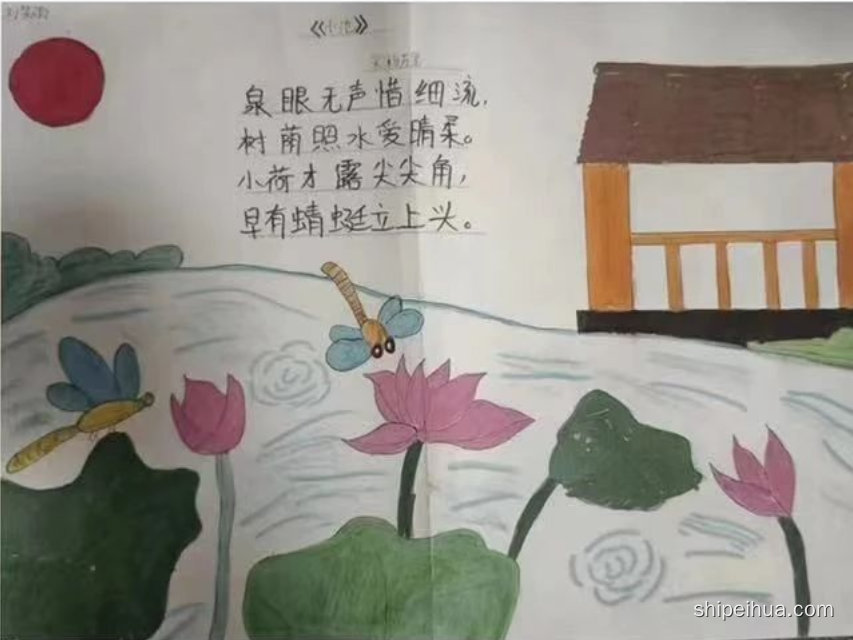 《小池》
宋 杨万里
泉眼无声惜细流,
树荫照水爱晴柔。
小荷才露尖尖角,
早有蜻蜓立上头。
shipeihua.com